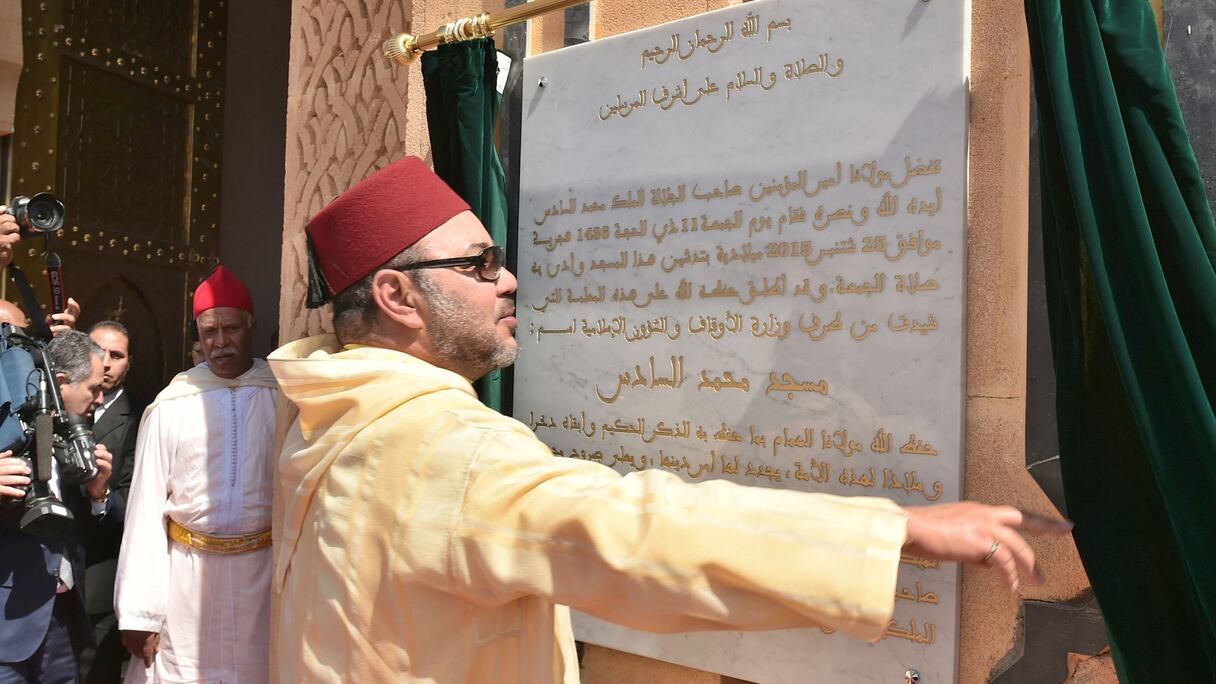 بسم الله الرحمان الرحيم
والصلاة والسلام على أشرف المرسلين
تفضل مولانا أمير المؤمنين صاحب الجلالة الملك محمد السادس
أيده الله ونصره فقام يوم الجمعة 11 ذي الحجة 1436 هجرية
موافق 25 شتنبر 2015 ميلادية بتدشين هذا المسجد وأدى به
صلاة الجمعة. وقد أطلق حفظه الله على هذه المعلمة التي
شيدت من طرف وزارة الأوقاف والشؤون الإسلامية اسم :
مسجد محمد السادس
حفظ الله مولانا الهمام بما حفظ به الذكر الحكيم وأبقاه ذخرا
وملاذا لهذه الأمة، يجدد لها أمر دينها، ويعلي